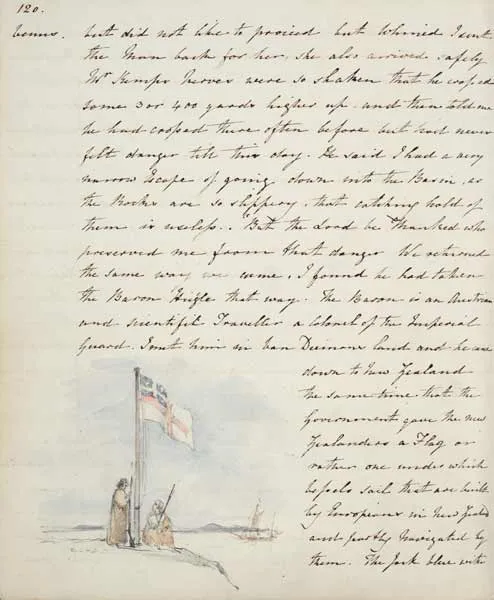 120.
venus. but did not like to proceed but whined I sent
the Man back for her, she also arrived safely
Mr Kemps Nerves were so shaken that he crossed
some 3 or 400 yards higher up. and then told me
he had crossed there often before but had never
felt danger till this day. He said I had a very
narrow Escape of going down into the Basin, as
the Rocks are so slippery, that catching hold of
them is useless.. But the Lord be Thanked who
preserved me from that danger We returned
the same way we came. I found he had taken
the Baron Hügle that way. The Baron is an Austrian
and scientific Traveller a Colonel of the Imperial
Guard. I met him in Van Diemans Land and he came
down to New Zealand
the same time that the
Government gave the New
Zealanders a Flag or
rather one under which
vessels sail that are built
by Europeans in New Zealand
and partly Navigated by
them. The Jack blue with